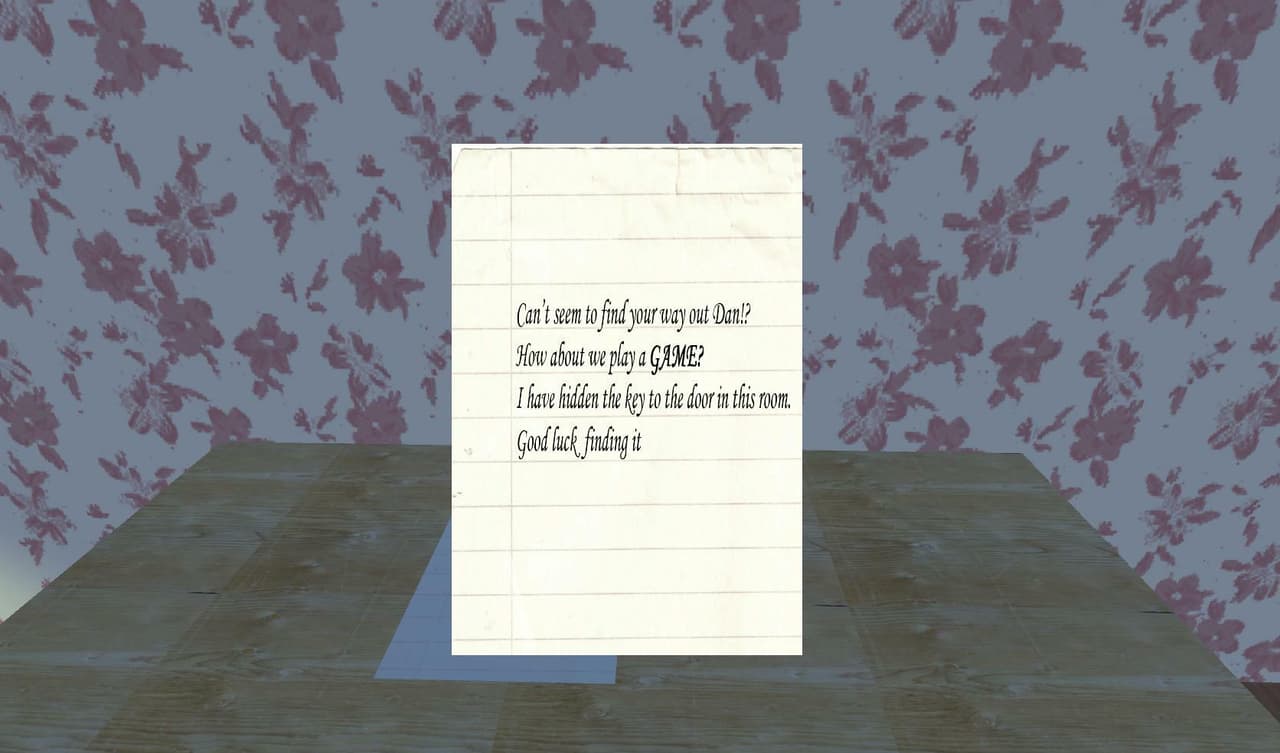 Can't seem to find your way out Dan!?
How about we play a GAME?
I have hidden the key to the door in this room.
Good luck finding it